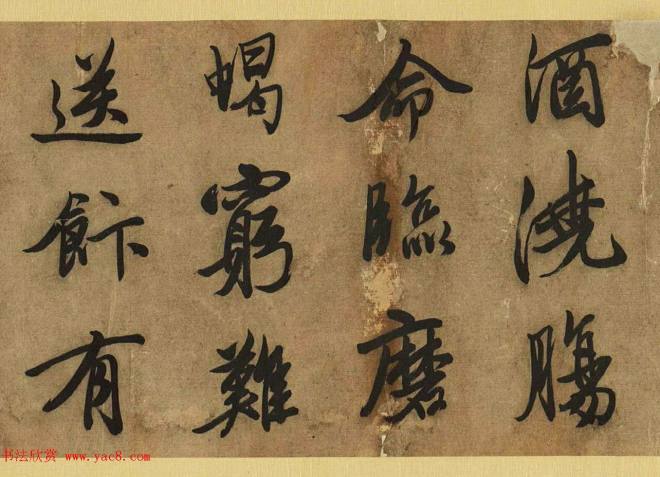 酒澆腸
命臨磨
蝎窮難
送餅有
书法欣赏 www.yac8.com